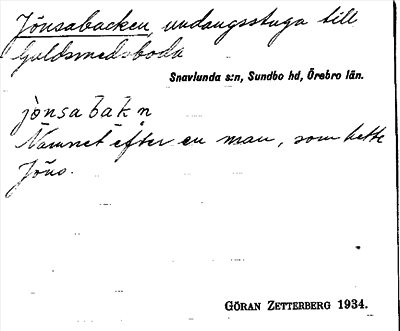 Jönsabacken, undangsstuga till
Guldsmedsboda
Snavlunda s:n, Sundbo hd, Örebro län.
jònsabak̀n
Namnet efter en man, som hette
Jöns.
GÖRAN ZETTERBERG 1934.